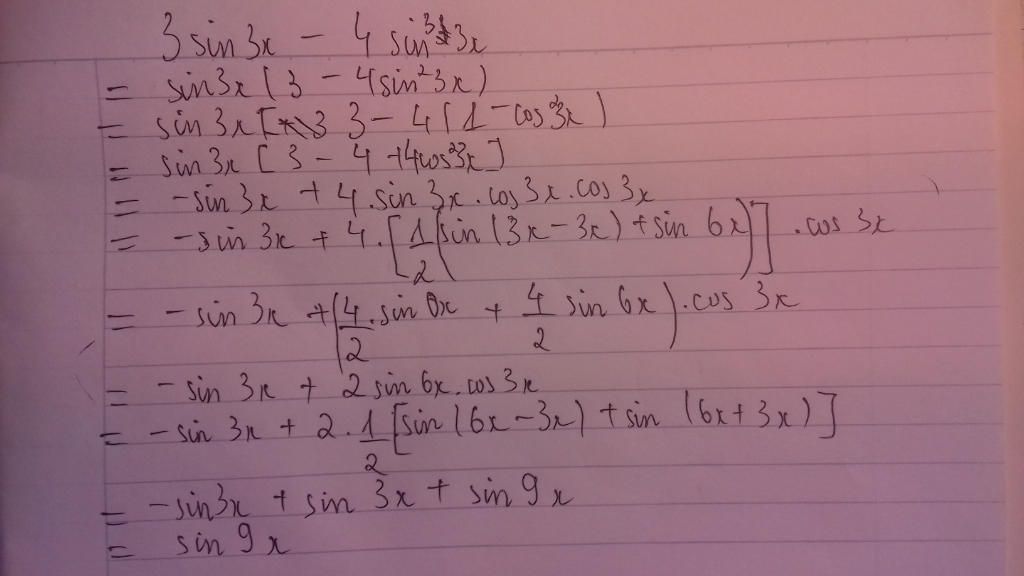 3 sin 3x − 4 sin³ 3x
= sin3x (3 − 4sin²3x)
= sin 3x [ 3 − 4(1 − cos²3x)
= sin 3x [3 − 4 + 4cos²3x]
= −sin 3x + 4.sin 3x.cos3x.cos 3x
= −sin 3x + 4.[1/2(sin(3x−3x) + sin 6x)] .cos 3x
= −sin 3x + (4/2.sin 0x + 4/2 sin 6x).cos 3x
= −sin 3x + 2 sin 6x.cos 3x
= −sin 3x + 2.1/2[sin(6x−3x) + sin (6x+3x)]
= −sin3x + sin 3x + sin 9x
= sin 9x